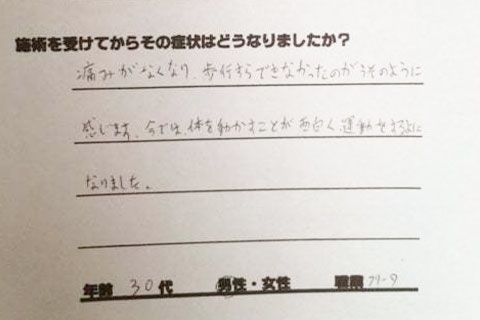 施術を受けてからその症状はどうなりましたか？
痛みがなくなり、歩行すらできなかったのがうそのように
感じます。今では、体を動かすことが面白く、運動をするように
なりました。
年齢 30代 男性・女性 職業